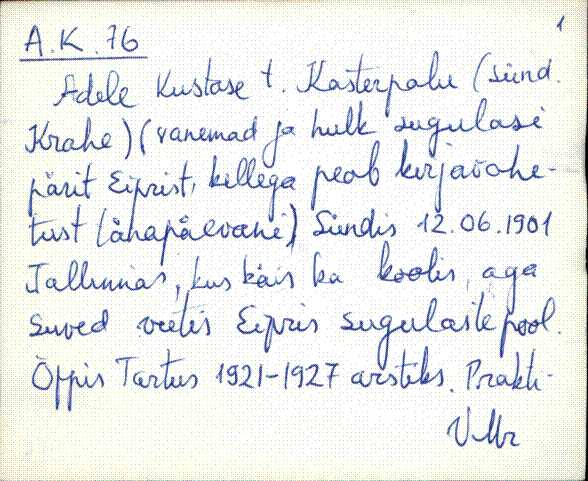 1
A.K. 76
Adele Kustase t. Kasterpalu (sünd.
Krahe) (vanemad ja hulk sugulasi
pärit Eiprist, kellega peab kirjavahe-
tust tänapäevani) Sündis 12.06.1901
Tallinnas, kus käis ka koolis, aga
suved veetis Eipris sugulaste pool.
Õppis Tartus 1921-1927 arstiks. Prakti-